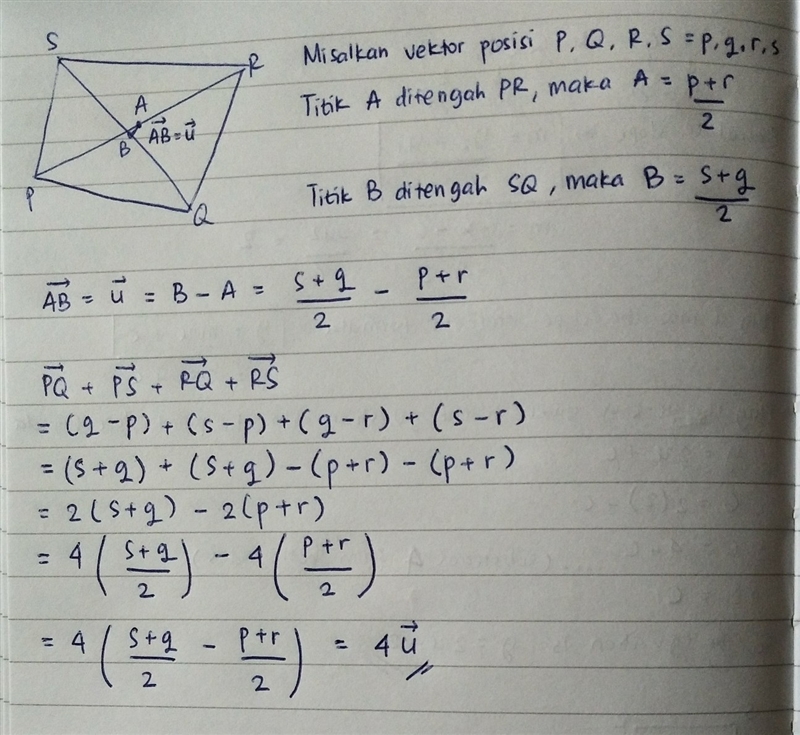 S
R
A
B
AB = u
P
Q
Misalkan vektor posisi P, Q, R, S = p, q, r, s
Titik A ditengah PR, maka A = p+r/2
Titik B ditengah SQ, maka B = s+q/2
AB = u = B - A = s+q/2 - p+r/2
PQ + PS + RQ + RS
= (q-p) + (s-p) + (q-r) + (s-r)
= (s+q) + (s+q) - (p+r) - (p+r)
= 2(s+q) - 2(p+r)
= 4(s+q/2) - 4(p+r/2)
= 4(s+q/2 - p+r/2) = 4u